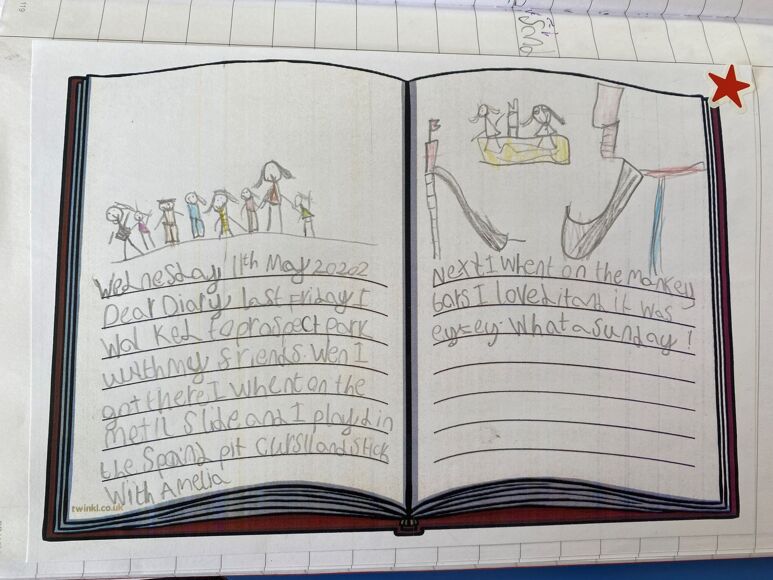 Wednesday 11th May 20202
Dear Diary, last Friday I
Walked to prospect park
with my friends. Wen I
got there I whent on the
metil Slide and I played in
the Spaind pit
With Amelia
twinkl.co.uk
Next I whent on the monkey
bars I loved it and it was
eysey. What a sunday!